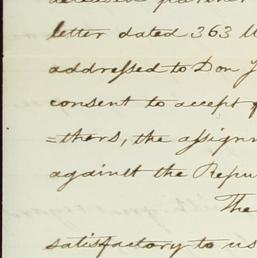 deceased partner
letter dated 363
addressed to Don
consent to accept
=thers, the assignm
against the Repu
The
satisfactory to us